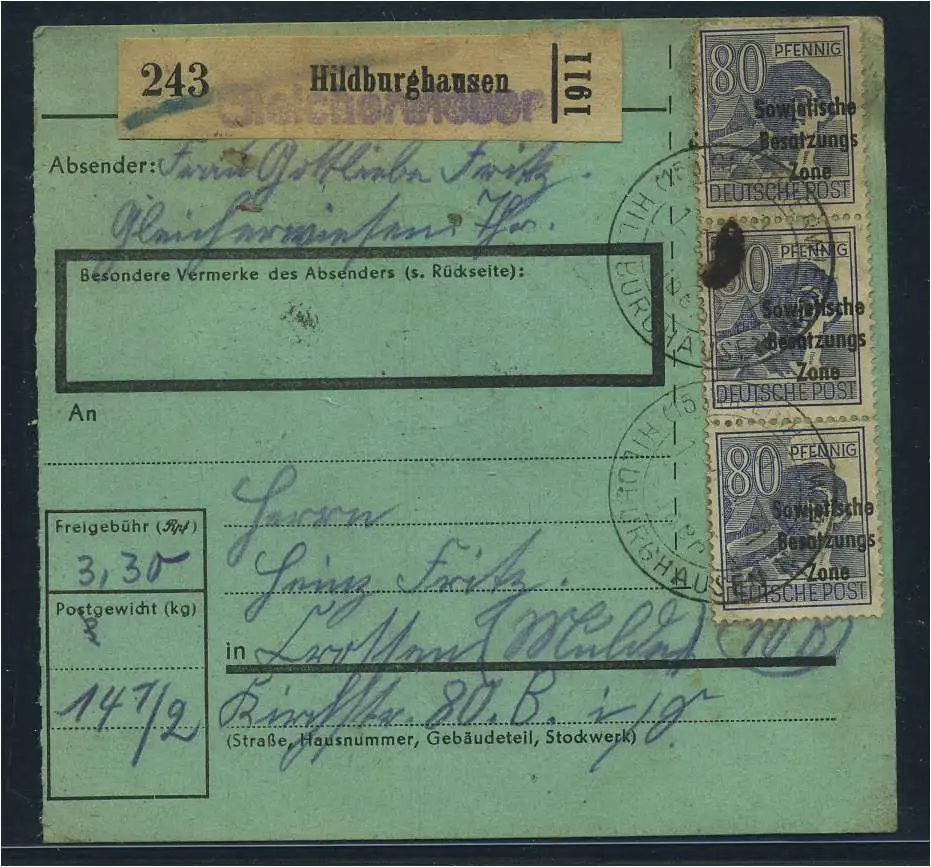 243 Hildburghausen 1911
Gleicherwiesen
Absender: Frau Gottliebe Fritz.
Gleicherwiesen Thr.
Besondere Vermerke des Absenders (s. Rückseite):
An
Herrn
Heinz Fritz.
in (Mulde) (10b)
Kirchstr. 80. B.
(Straße, Hausnummer, Gebäudeteil, Stockwerk)
Freigebühr (Rpf)
3,30
Postgewicht (kg)
14 1/2
80 PFENNIG
Sowjetische
Besatzungs
Zone
DEUTSCHE POST
80 PFENNIG
Sowjetische
Besatzungs
Zone
DEUTSCHE POST
80 PFENNIG
Sowjetische
Besatzungs
Zone
DEUTSCHE POST
HILDBURGHAUSEN
(15
HILDBURGHAUSEN
(15